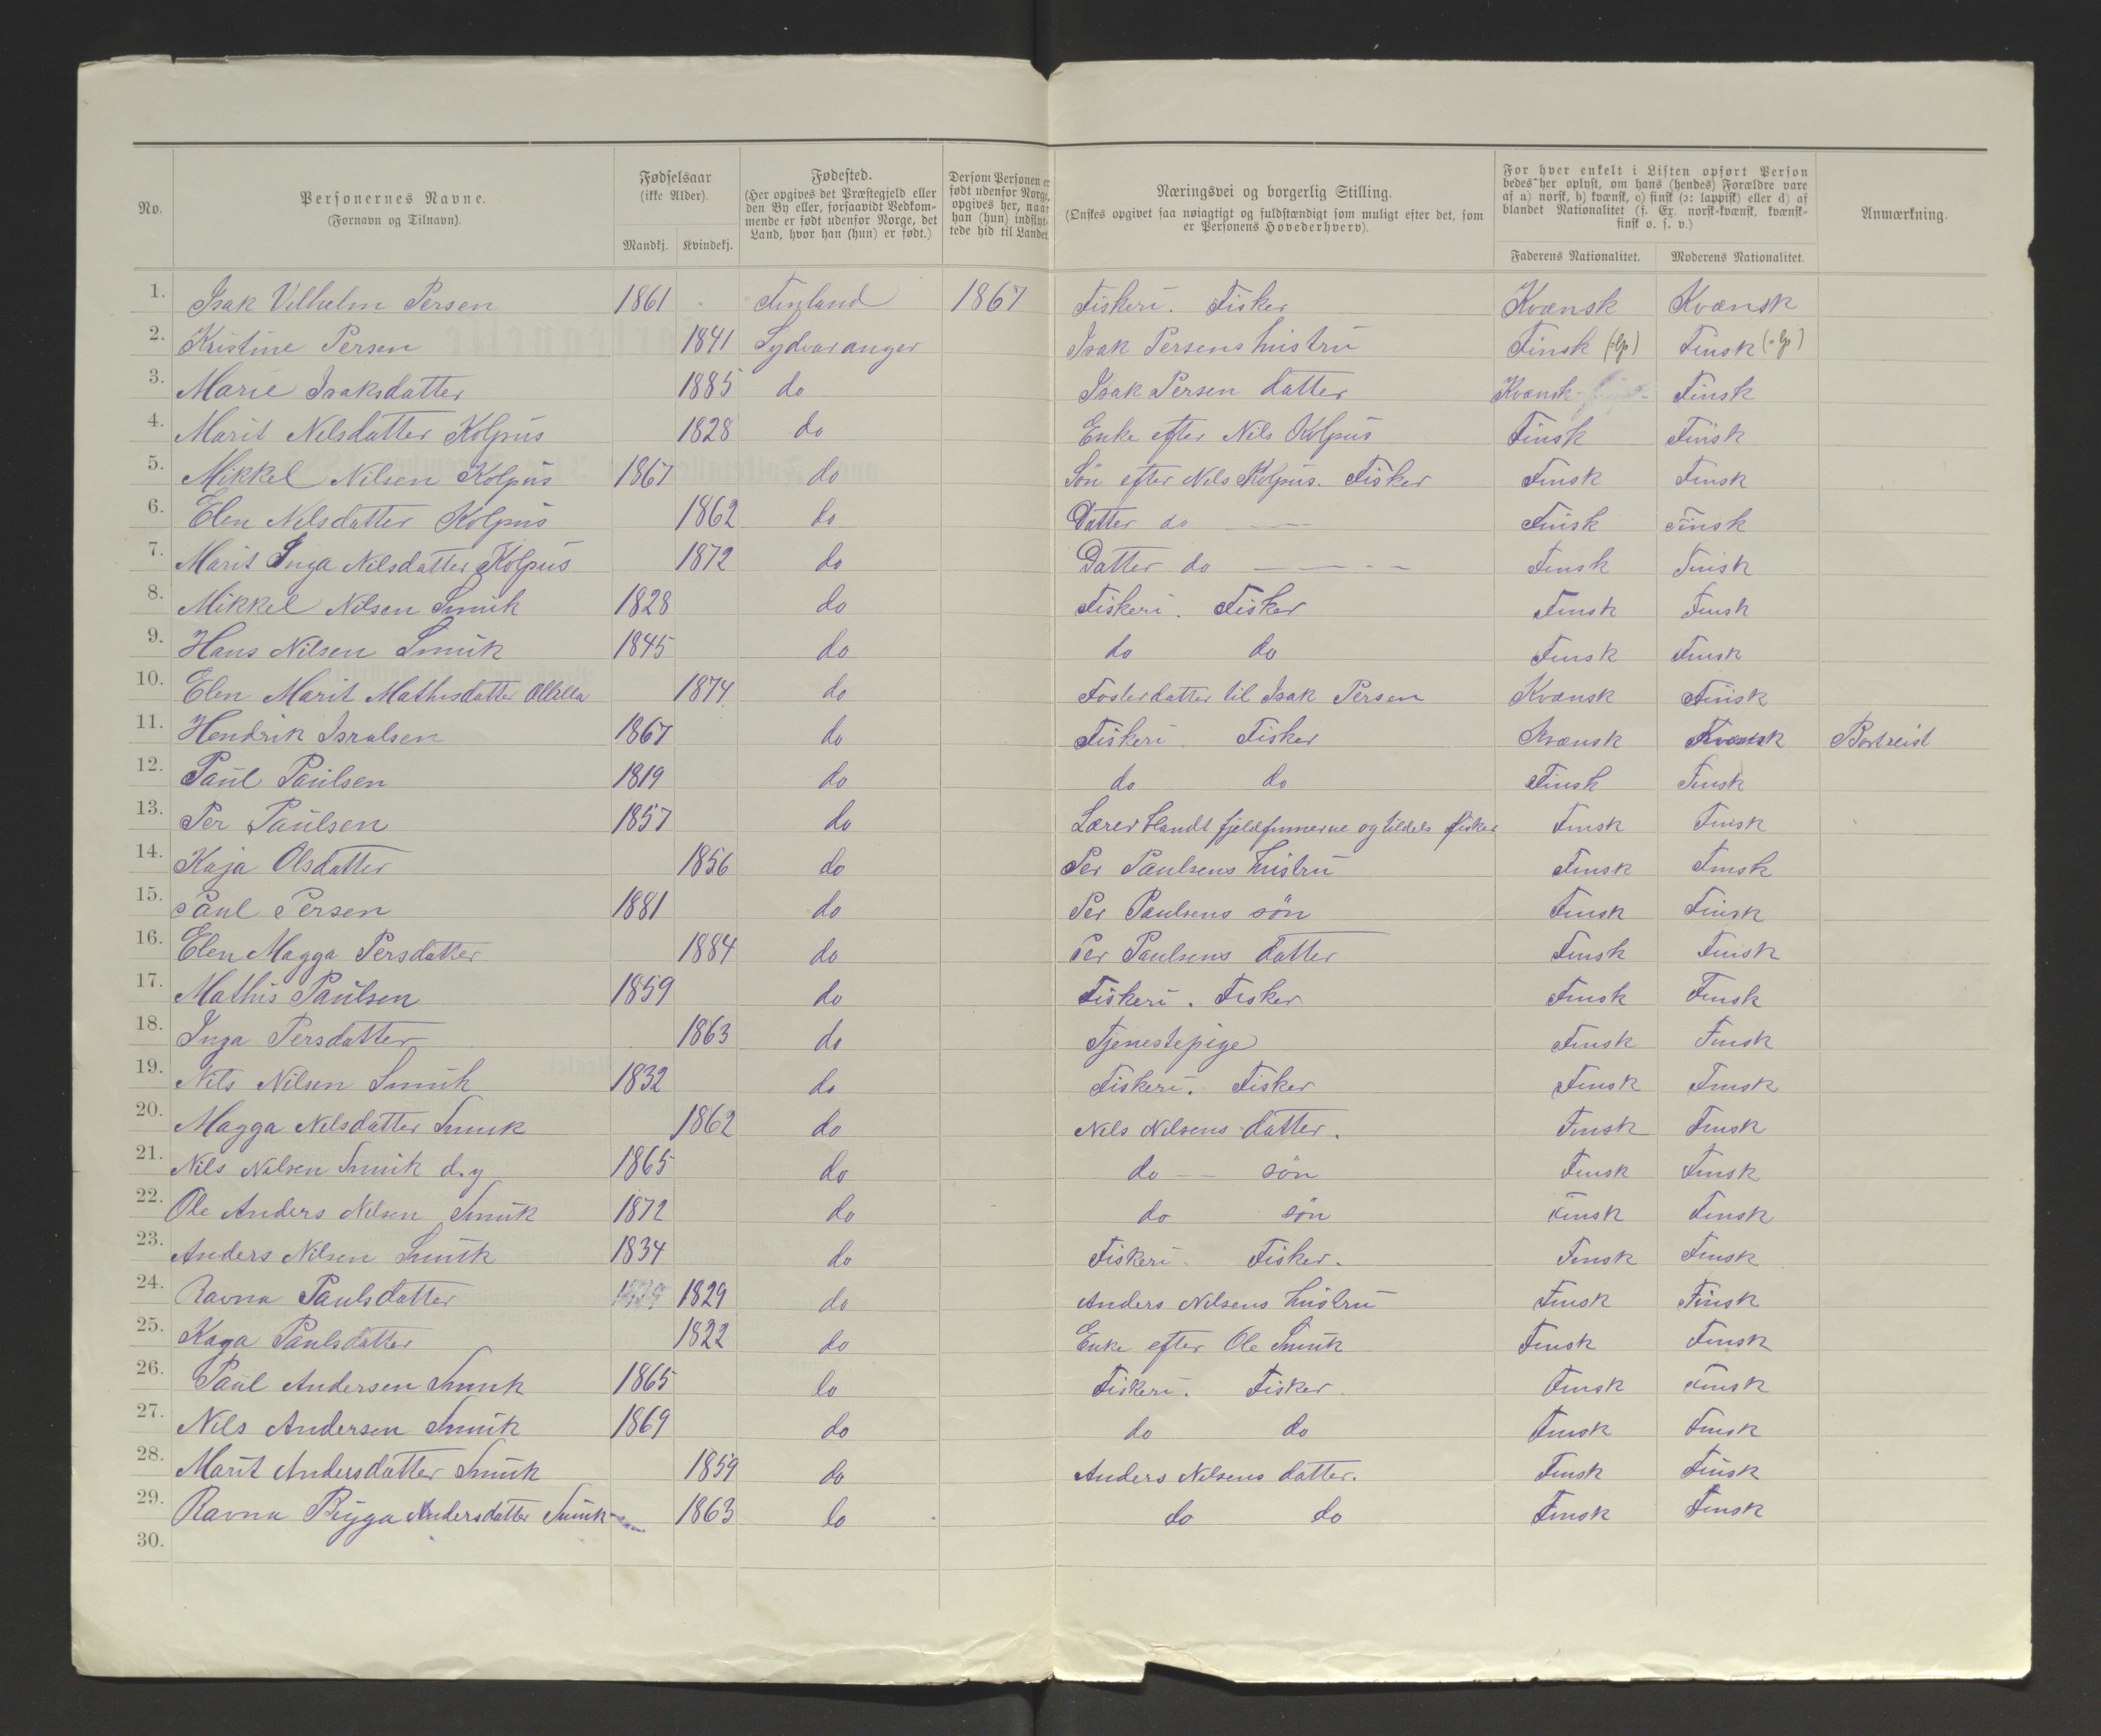 No.
Personernes Navne.
(Fornavn og Tilnavn).
Fødselsaar
(ikke Alder).
Mandkj. Kvindekj.
Fødested.
(Her opgives det Præstegjeld eller
den By eller, forsaavidt Vedkom-
mende er født udenfor Norge, det
Land, hvor han (hun) er født.)
Dersom Personen er
født udenfor Norge,
opgives her, naar
han (hun) indflyt-
tede hid til Landet.
Næringsvei og borgerlig Stilling.
(Ønskes opgivet saa nøiagtigt og fuldstændigt som muligt efter det, som
er Personens Hovederhverv).
For hver enkelt i Listen opført Person
bedes her oplyst, om hans (hendes) Forældre vare
af a) norsk, b) kvænsk, c) finsk (ɔ: lappisk) eller d) af
blandet Nationalitet (f. Ex. norsk-kvænsk, kvænsk-
finsk o. s. v.)
Faderens Nationalitet. Moderens Nationalitet.
Anmærkning.
1. Isak Vilhelm Persen 1861 Finland 1867 Fiskeri. Fisker Kvænsk Kvænsk
2. Kristine Persen 1841 Sydvaranger Isak Persens hustru Finsk (=lp) Finsk (=lp)
3. Marie Isaksdatter 1885 do Isak Persen datter Kvænsk Finsk
4. Marit Nilsdatter Kolpus 1828 do Enke efter Nils Kolpus Finsk Finsk
5. Mikkel Nilsen Kolpus 1867 do Søn efter Nils Kolpus. Fisker Finsk Finsk
6. Elen Nilsdatter Kolpus 1862 do Datter do — — Finsk Finsk
7. Marit Inga Nilsdatter Kolpus 1872 do Datter do — — - - Finsk Finsk
8. Mikkel Nilsen Smuk 1828 do Fiskeri. Fisker Finsk Finsk
9. Hans Nilsen Smuk 1845 do do do Finsk Finsk
10. Elen Marit Mathisdatter 1874 do Fosterdatter til Isak Persen Kvænsk Finsk
11. Hendrik Isralsen 1867 do Fiskeri Fisker Kvænsk Kvænsk Bortreist
12. Paul Paulsen 1819 do do do Finsk Finsk
13. Per Paulsen 1857 do Lærer blandt fjeldfinnerne og tildels fisker Finsk Finsk
14. Kaja Olsdatter 1856 do Per Paulsens hustru Finsk Finsk
15. Paul Persen 1881 do Per Paulsens søn Finsk Finsk
16. Elen Magga Persdatter 1884 do Per Paulsens datter Finsk Finsk
17. Mathis Paulsen 1859 do Fiskeri. Fisker Finsk Finsk
18. Inga Persdatter 1863 do Tjenestepige Finsk Finsk
19. Nils Nilsen Smuk 1832 do Fiskeri. Fisker Finsk Finsk
20. Magga Nilsdatter Smuk 1862 do Nils Nilsens datter. Finsk Finsk
21. Nils Nilsen Smuk d.y 1865 do do — — søn Finsk Finsk
22. Ole Anders Nilsen Smuk 1872 do do søn Finsk Finsk
23. Anders Nilsen Smuk 1834 do Fiskeri Fisker. Finsk Finsk
24. Ravna Paulsdatter 1829 do Anders Nilsens hustru Finsk Finsk
25. Kaga Paulsdatter 1822 do Enke efter Ole Smuk Finsk Finsk
26. Paul Andersen Smuk 1865 do Fiskeri. Fisker Finsk Finsk
27. Nils Andersen Smuk 1869 do do do Finsk Finsk
28. Marit Andersdatter Smuk 1859 do Anders Nilsens datter. Finsk Finsk
29. Ravna Andersdatter Smuk 1863 do do do Finsk Finsk
30.